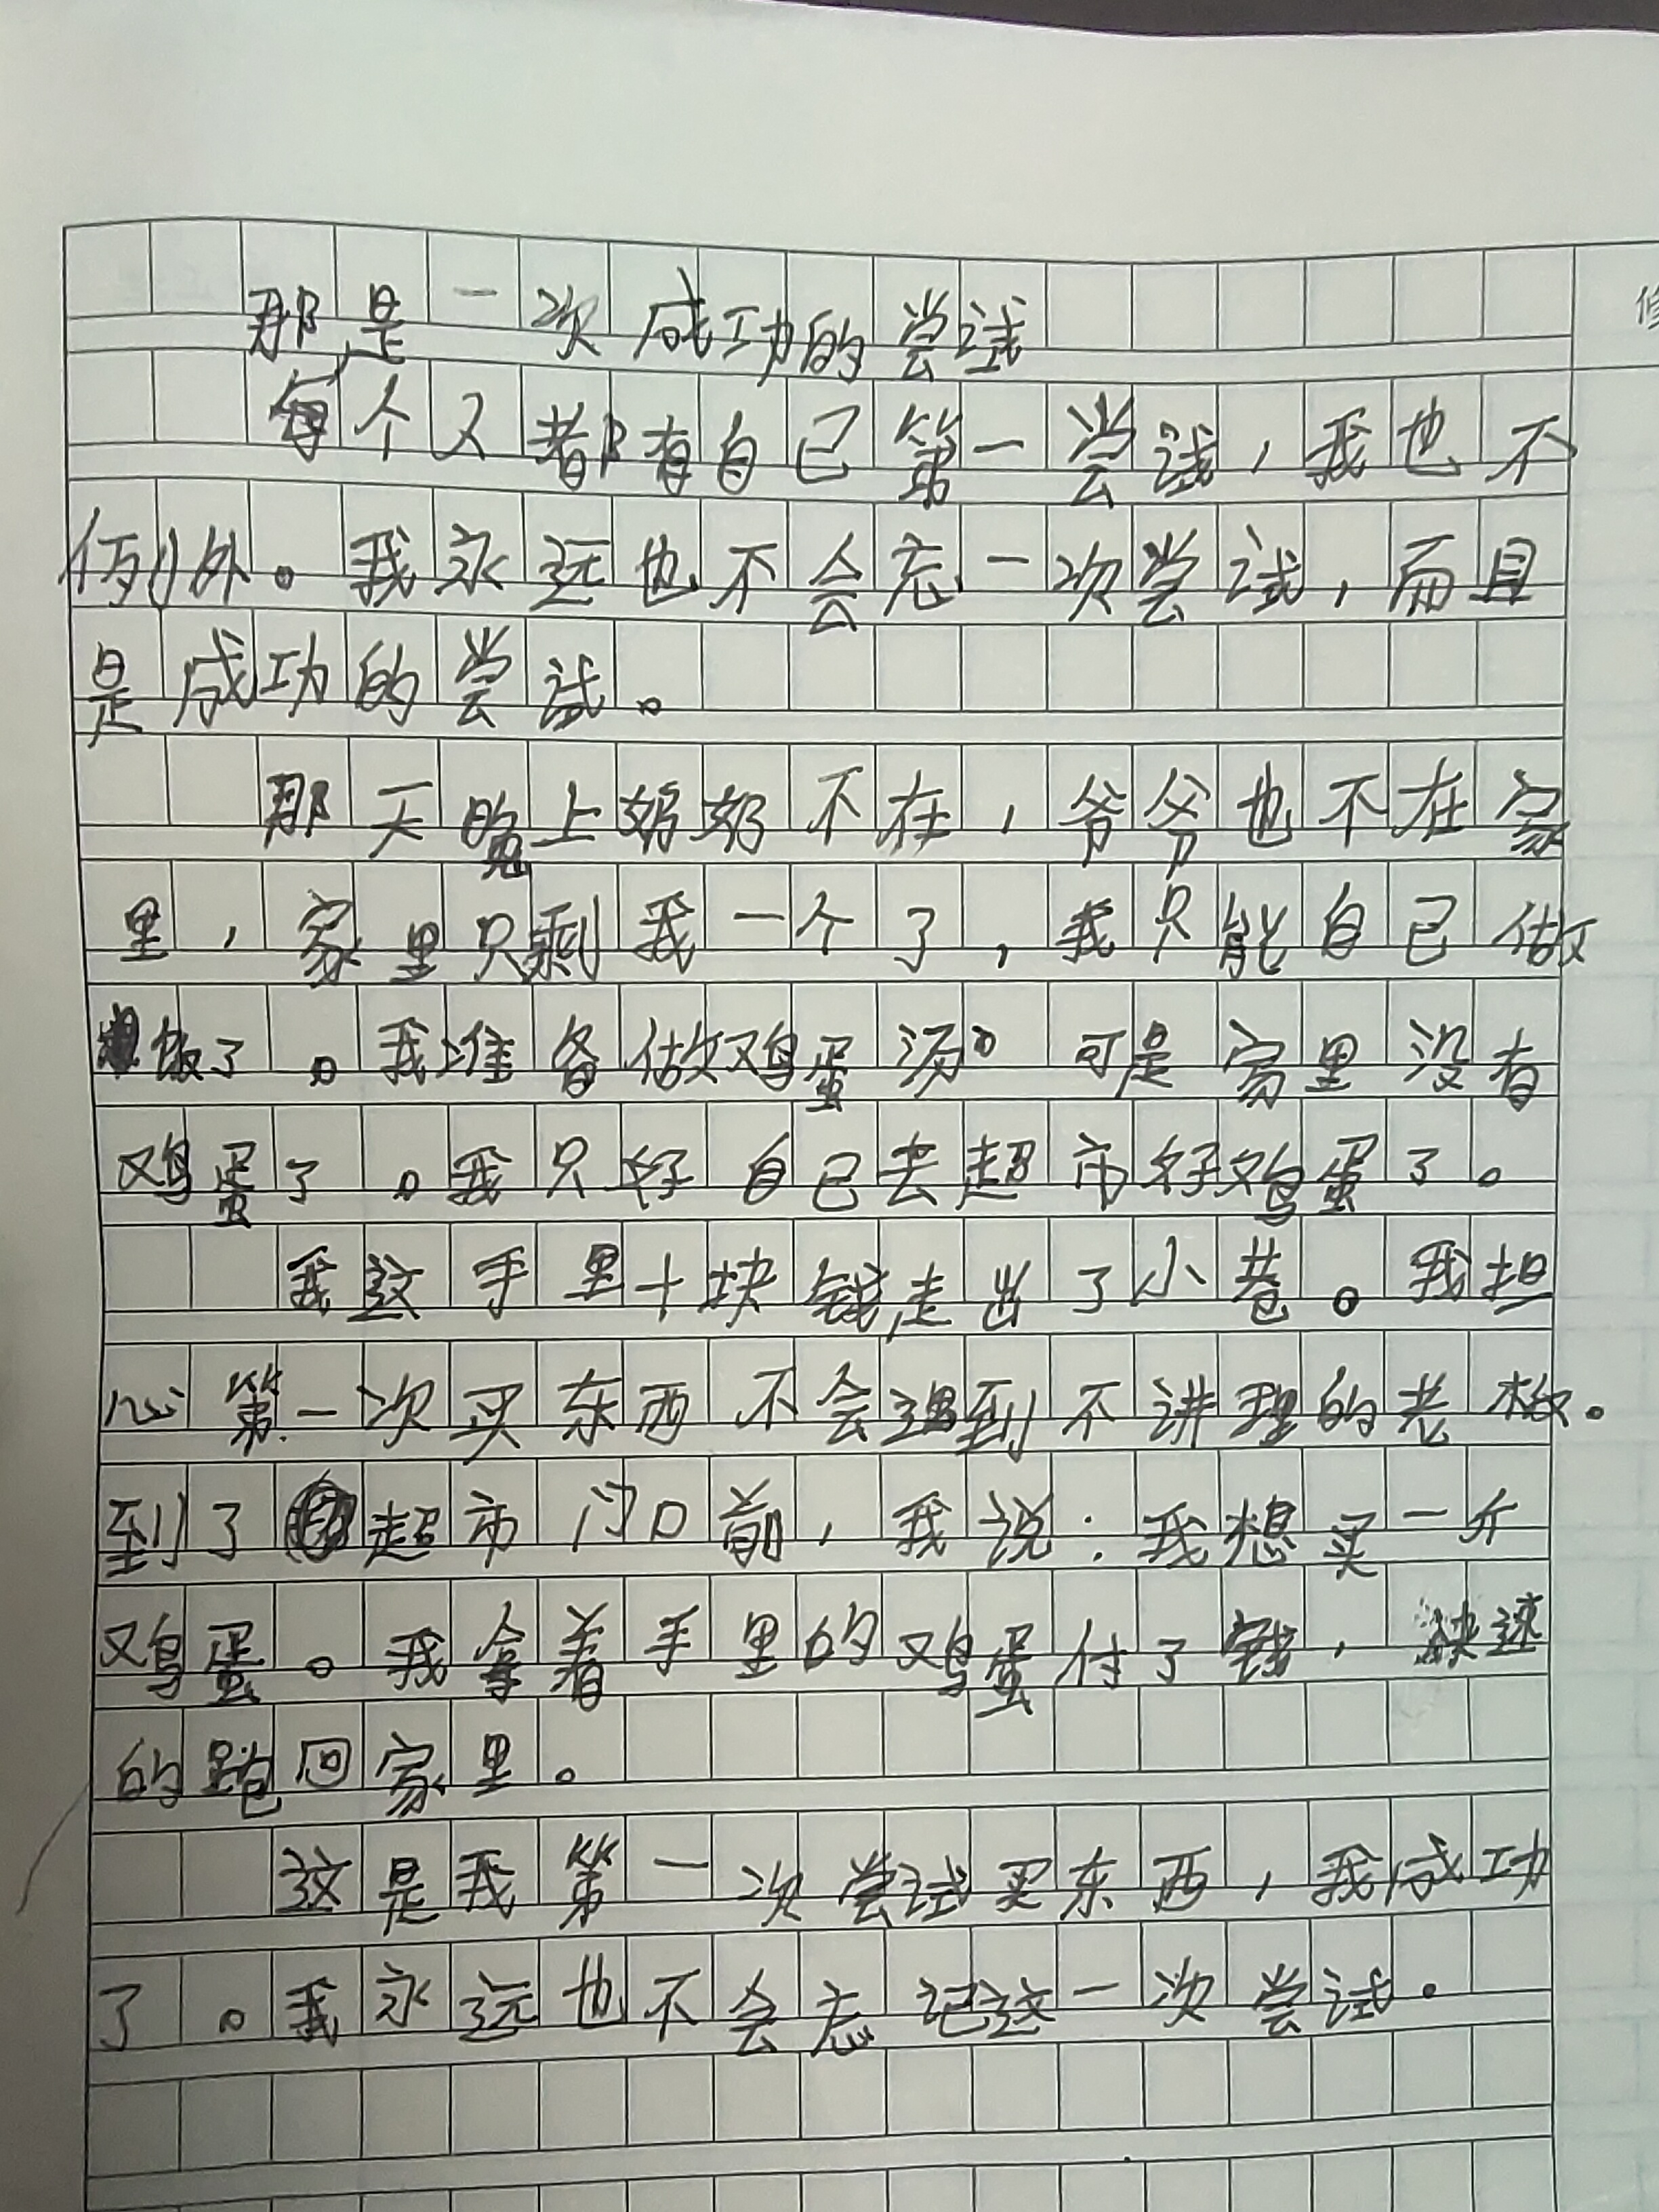 那是一次成功的尝试
每个人都有自己第一尝试，我也不
例外。我永远也不会忘一次尝试，而且
是成功的尝试。
那天晚上奶奶不在，爷爷也不在家
里，家里只剩我一个了，我只能自己做
饭了。我准备做鸡蛋汤。可是家里没有
鸡蛋了。我只好自己去超市好鸡蛋了。
我这手里十块钱走出了小巷。我担
心第一次买东西不会遇到不讲理的老板。
到了超市门口前，我说：我想买一斤
鸡蛋。我拿着手里的鸡蛋付了钱，快速
的跑回家里。
这是我第一次尝试买东西，我成功
了。我永远也不会忘记这一次尝试。